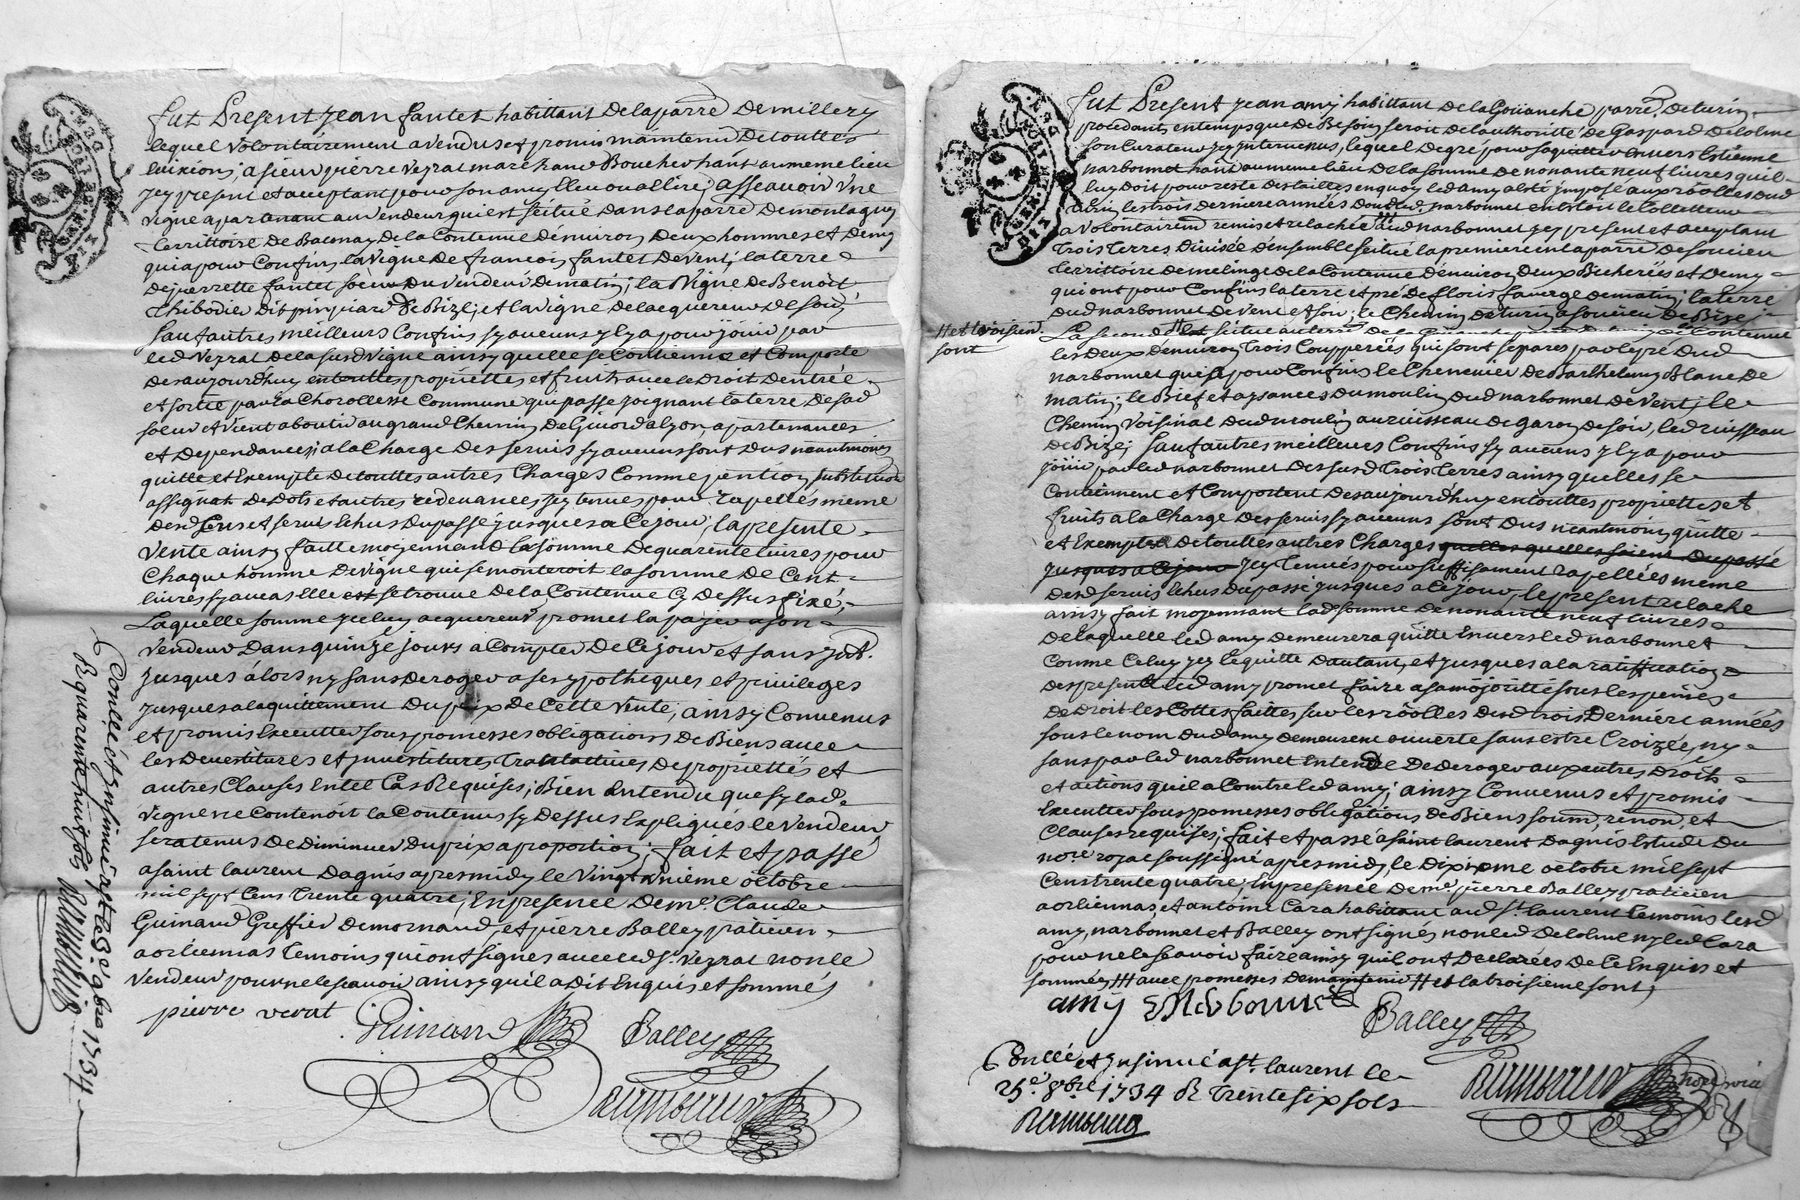 fut Present Jean fantet habittant de la parre de millery
lequel volontairement a vendu et promis maintenir de touttes
evixions, a sieur pierre veyrat marchand Boucher hant au meme lieu
jcy present et acceptant pour son amy Eleu ou allire, assavoir Une
vigne apartenant au vendeur qui est scitué dans la parre de montagny
territtoire de Batonay de la Contenue d'environ deux hommes et demy
qui a pour Confins la vigne de francois fantet de vent; la terre
de pierrette fantet soeur du vendeur de matin; la vigne de Benoit
Chibodie dit de Bize; et la vigne de lacquereur de soir;
sauf autres meilleurs Confins sy aucuns y l y a pour jouir par
led veyrat de la susd vigne ainsy quelle se Contienne et Comporte
des aujourdhuy entouttes propriettes et fruits avec le Droit dentrée
et sortie par la Charollesse Commune qui passe joignant la terre de sad
soeur et vient aboutir au grand Chemin de Givord a lyon, apartenances
et dependances; a la Charge des servis sy aucuns sont dus neantmoins
quitte et Exempte de touttes autres Charges Comme pention, substitution
assignat de dots et autres redevances jcy tenues pour rapellés meme
desd Cens et servis Echus du passé jusques a Ce jour, la presente
vente ainsy faitte moyennand la somme de quarente livres pour
Chaque homme de vigne qui se monteroit la somme de Cent
livres sy au cas Elle est se trouve de la Contenue Cy dessus fixé,
Laquelle somme jceluy acquereur promet la payer a son
vendeur dans quinze jours a Compter de Ce jour et sans jnt.
jusques a lors ny sans deroger a ses ypotheques et privileges
jusques a laquittement du prix de Cette vente; ainsy Convenus
et promis Executter sous promesses obligations de Biens avec
les devestitures et jnvestitures translatives de propriettés et
autres Clauses En tel Cas Requises; Bien Entendu que sy lad
vigne ne Contenoit la Contenus sy dessus Expliqués le vendeur
sera tenus de diminuer du prix a proportion; fait et passé
a saint laurent dagnis apres midy le vingt unième octobre
mil sept Cens trente quatre; En presence de me. Claude
Guinand Greffier de mornand, et pierre Balley praticien
a orliennas temoins qui ont signes avec led sr. veyrat non le
vendeur pour ne le scavoir ainsy quil a dit Enquis et sommé
pierre verat
Guinand
Balley
Ramband
Conllé et Insinué a st la 8e. 9bre 1734
R quarente huit sols
fut Present jean amy habittant de la Goüanche parre. de turin
procedant en temps que de Besoin seroit de lauthorité de Gaspard Delolme
son Curateur jcy jntervenus, lequel de gré pour saquitter Envers Estienne
narbonnet hant au meme lieu de la somme de nonante neuf livres quil
luy doit pour reste des tailles en quoy led amy a eté jmposé aux roolles dud
turin les trois dernieres années dont led. narbonnet en Etoit le Collecteur
a volontairemt remis et relaché aud narbonnet jcy present et aceptant
trois terres divisée densemble scitué la premiere en la parre de soucieu
territtoire de melinge de la Contenue denviron deux Bicherées et demy
qui ont pour Confins la terre et pré de flouis faverge de matin; la terre
dud narbonnet de vent et soir; le Chemin de turin a soucieu de Bize;
# et le voisin
sont
les deux denviron trois Coupperées qui sont separes par le pré dud
narbonnet que se pour Confins le Chenevier de Barthelemy Blanc de
matin; le Bief et aysances du moulin dud narbonnet de vent; le
Chemin voisinal dud moulin au ruisseau de garon de soir, led ruisseau
de Bize; sauf autres meilleurs Confins sy aucuns y l y a pour
jouir par led narbonnet des susd trois terres ainsy quelles se
Contiennent et Comportent des aujourdhuy entouttes propriettes et
fruits a la Charge des servis sy aucuns sont dus neantmoins quitte
et Exempte de touttes autres Charges quelles quelles soient du passé
jusques a Ce jour jcy tenues pour suffisament rapellées meme
desd servis Echus du passé jusques a Ce jour, le present relache
ainsy fait moyennant lad somme de nonante neuf livres
de laquelle led amy demeurera quitte Envers led narbonnet
Comme Celuy jcy lequitte dautant, et jusques a la ratiffication
des presentes led amy promet faire a sa majoritté sous les peines
de Droit les Cottes faittes sur les roolles desd trois derniere années
sous le nom dud amy demeurent ouverte sans estre Croizée, ny
sans par led narbonnet Entendre de deroger aux autres droits
et actions quil a Contre led amy; ainsy Convenus et promis
Executter sous promesses obligations de Biens soumn, renon, et
Clauses requises; fait et passé a saint laurent dagnis Etude du
nore royal soussigné apres midy le dixieme octobre mil sept
Cens trente quatre; En presence de me. pierre Balley praticien
a orliennas, et antoine Cara habittant aud st. laurent temoins lesd
amy, narbonnet et Balley ont signés non led Delolme ny led Cara
pour ne le scavoir faire ainsy quil ont declarées de Ce Enquis et
sommés ### avec promesses de maintenir # et la troisieme sont,
amy
E Narbonnet
Balley
Conllé et Jnsinué a st. laurent le
25e. 8bre. 1734 R trente six sols
Ramband
Ramband nore royal